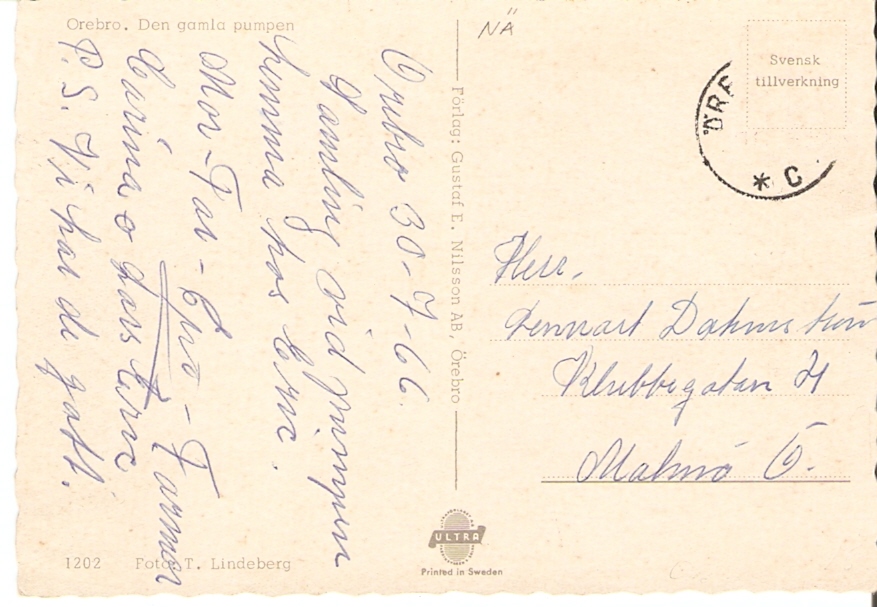 Orebro. Den gamla pumpen
NÄ
Svensk
tillverkning
ÖRE
* C
Örebro 30-7-66.
Samling vid pumpen
hemma hos Eric.
Mor-Far-Eric-Farmor
Carina o Lars Eric
P.S. Vi har de gott.
Förlag: Gustaf E. Nilsson AB, Örebro
Herr.
Lennart
Klubbegatan 21
Malmö Ö.
ULTRA
Printed in Sweden
1202 Foto: T. Lindeberg